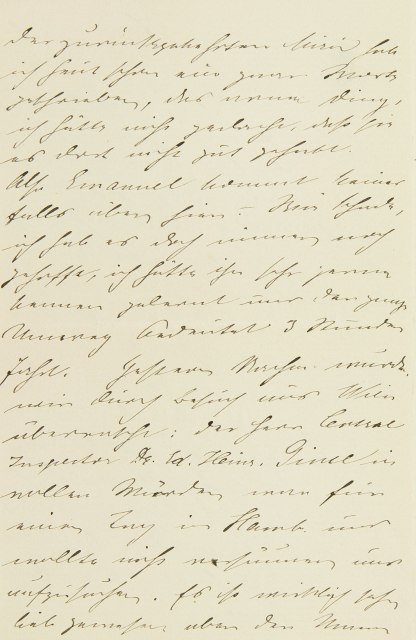 der zurückgekehrten Mizi hab
ich heut schon ein paar Worte
geschrieben, das arme Ding,
ich hätte nicht gedacht, dass sie
es dort nicht gut gehabt.
Also Emanuel kommt keines
falls über hier. Wie schade,
ich hab es doch immer noch
gehofft, ich hätte ihn sehr gerne
kennen gelernt und der ganze
Umweg bedeutet 3 Stunden
Fahrt. Gestern Nachm. wurden
wir durch Besuch aus Wien
überrascht: der Herr Central
Inspector Dr. Ed. Heinr. in
vollen war für
einen Tag in und
wollte nicht versäumen uns
aufzusuchen. Es ist wirklich sehr
lieb gewesen aber den